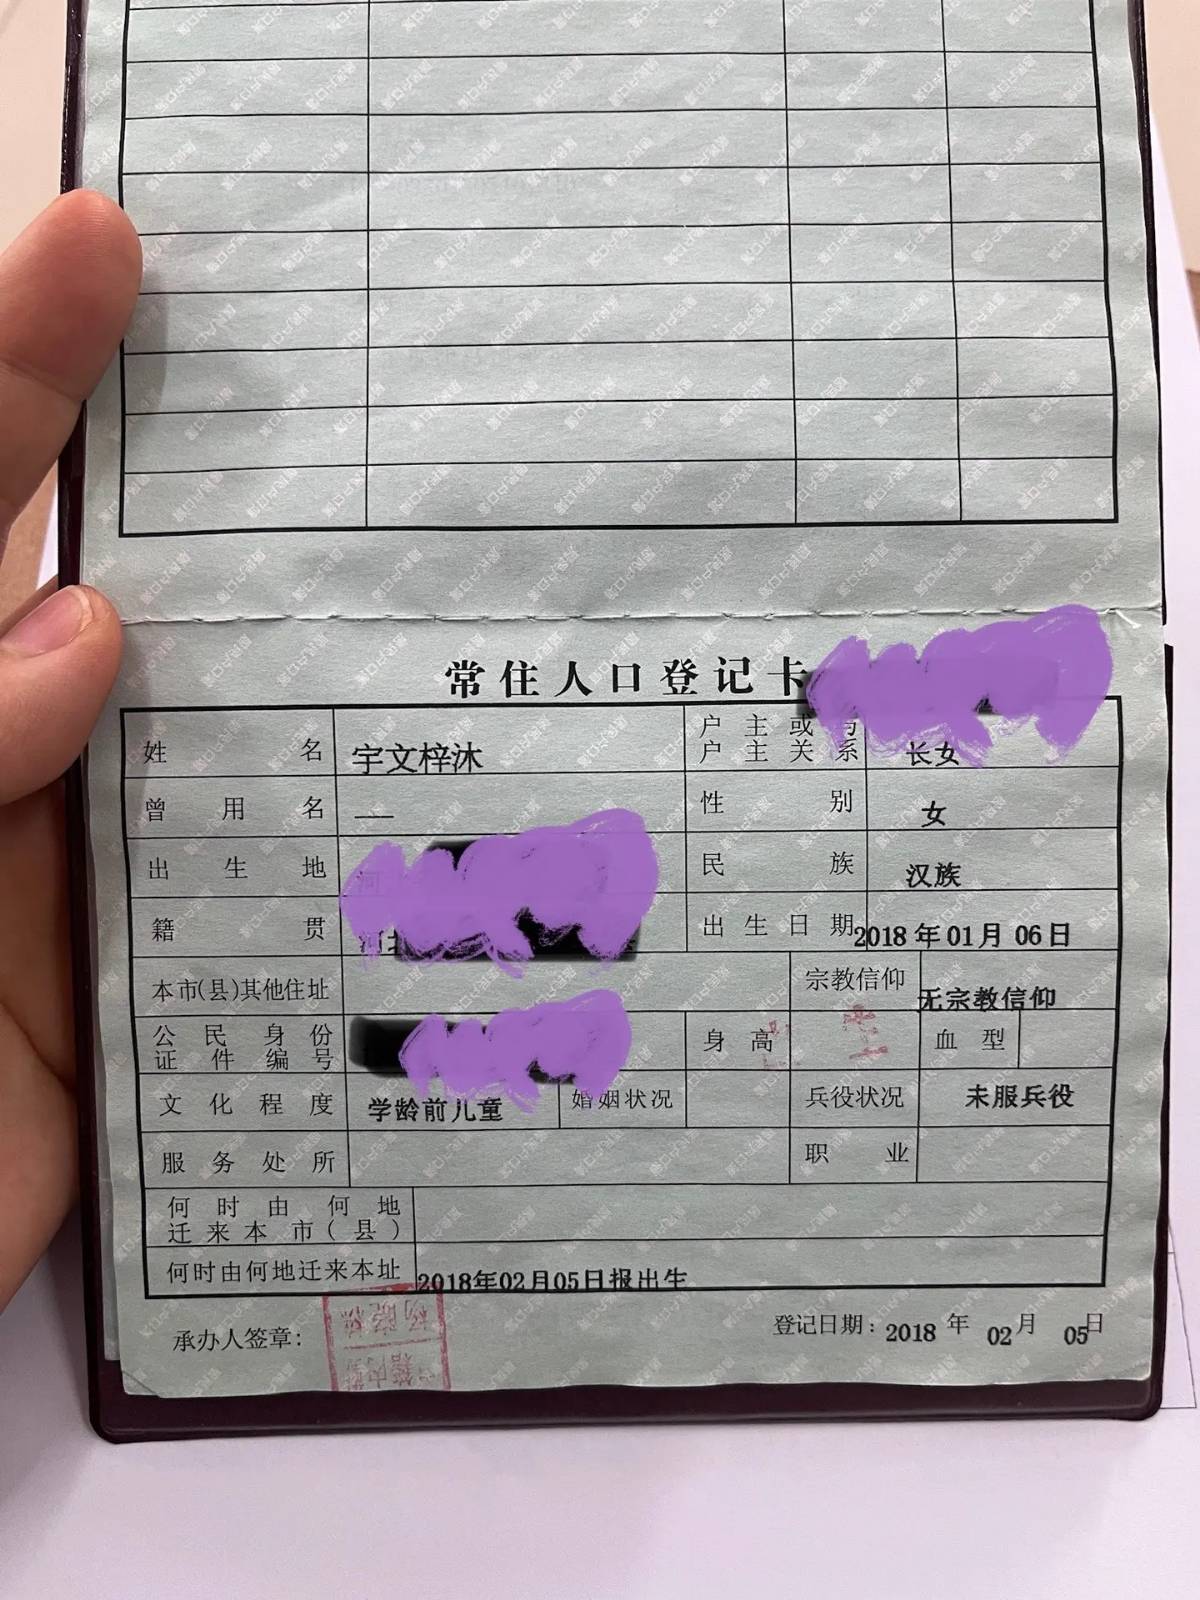 常住人口登记卡
姓名 宇文梓沐 户主或与户主关系 长女
曾用名 — 性别 女
出生地 河 民族 汉族
籍贯 河北 出生日期 2018年01月06日
本市(县)其他住址 宗教信仰 无宗教信仰
公民身份证件编号 身高 血型
文化程度 学龄前儿童 婚姻状况 兵役状况 未服兵役
服务处所 职业
何时由何地迁来本市(县)
何时由何地迁来本址 2018年02月05日报出生
承办人签章: 登记日期: 2018年02月05日